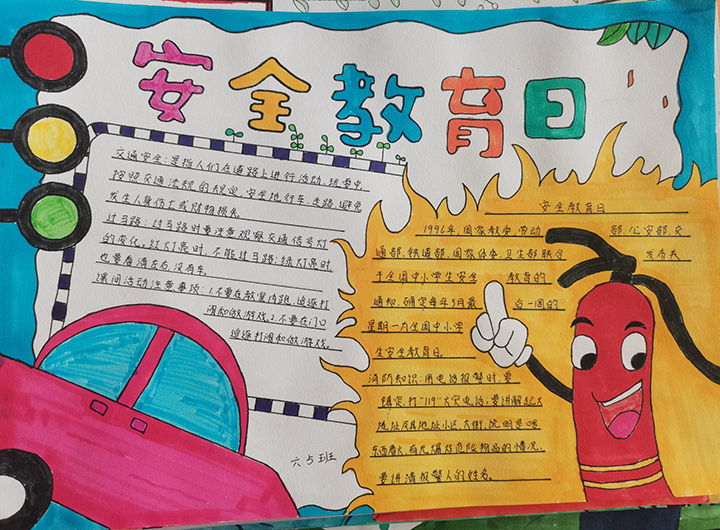 安全教育日
交通安全：是指人们在道路上进行活动、玩耍中
按照交通法规的规定，安全地行车、走路，避免
发生人身伤亡或财物损失。
过马路：过马路时要注意观察交通信号灯
的变化，红灯亮时，不能过马路；绿灯亮时，
也要看清左右，没有车
课间活动注意事项：1.不要在教室内跑、追逐打
闹和做游戏。2.不要在门口
追逐打闹和做游戏。
六5班
安全教育日
1996年，国家教委、劳动部、公安部、交
通部、铁道部、国家体委、卫生部联合发布关
于全国中小学生安全教育的
通知，确定每年3月最后一周的
星期一为全国中小学
生安全教育日。
消防知识：用电话报警时，要
镇定，打"119"火灾电话；要讲解起火
地址及其地址小区、大街，说明是啥
东西着火，有无爆炸危险物品的情况，
要讲清报警人的姓名。